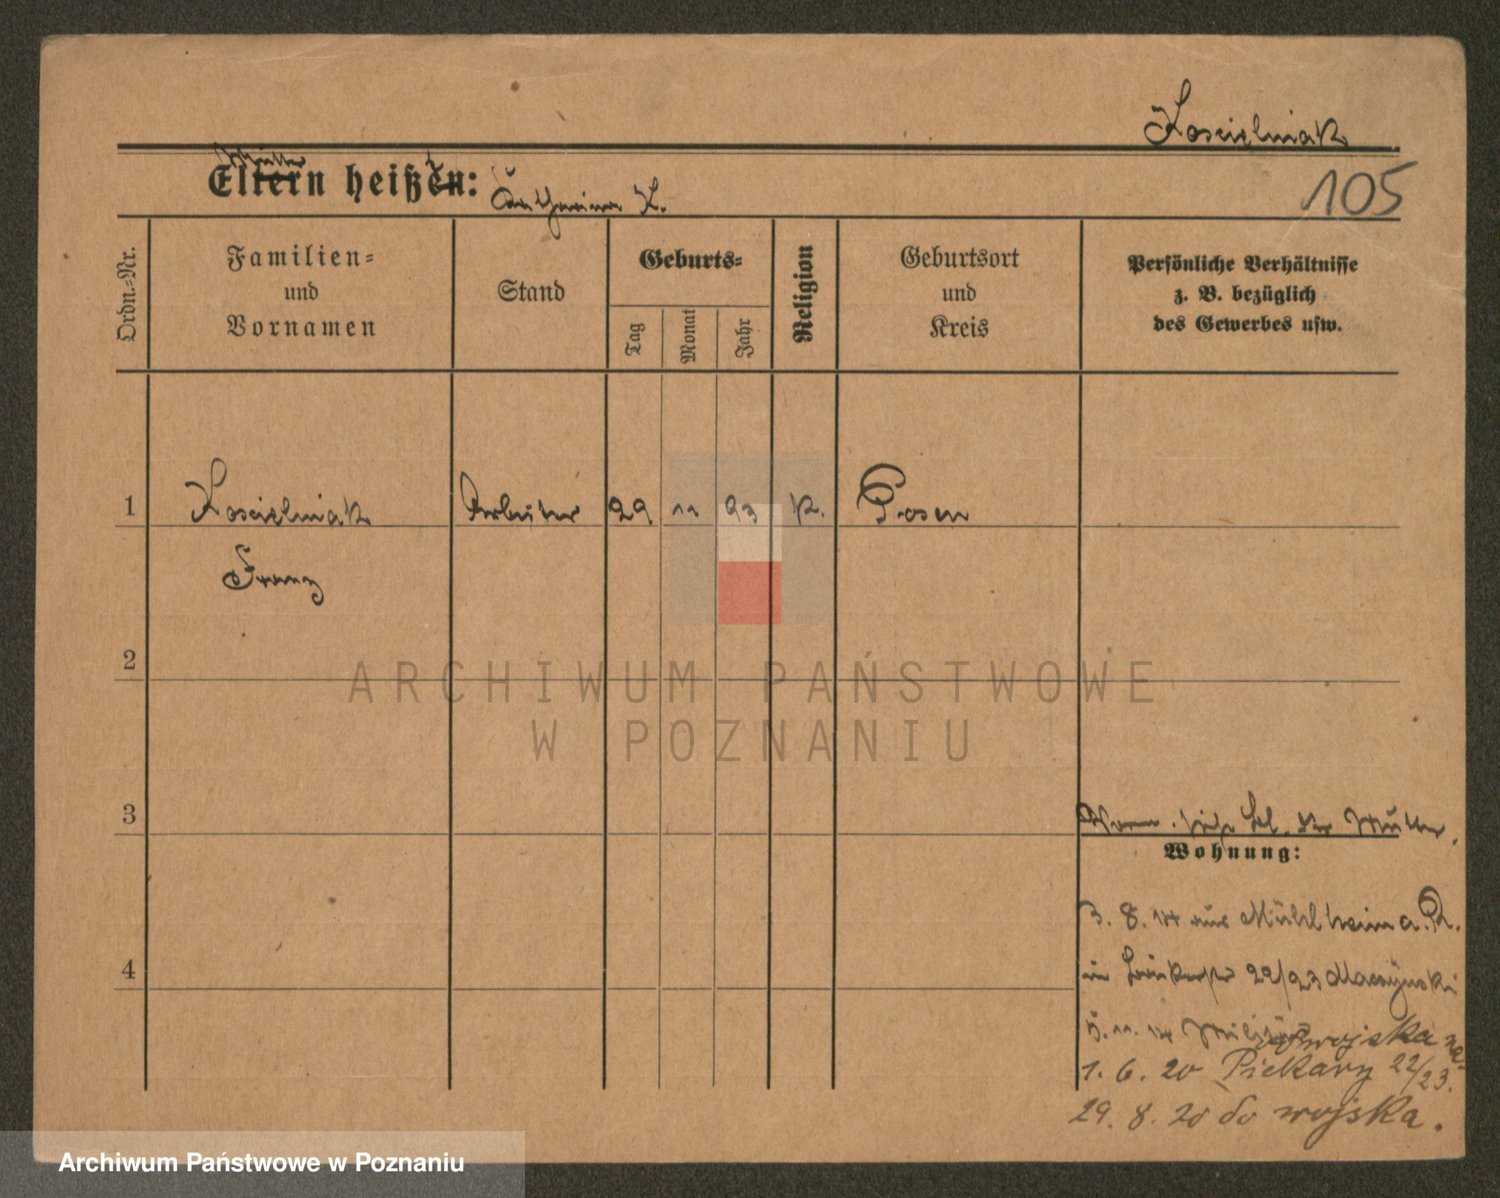 Koscielniak
Mutter
Eltern heißen: Catharina K.
105
Ordn.-Nr.
Familien-
und
Vornamen
Stand
Geburts-
Tag
Monat
Jahr
Religion
Geburtsort
und
Kreis
Persönliche Verhältnisse
z. B. bezüglich
des Gewerbes usw.
1 Koscielniak Arbeiter 29 11 93 k. Posen
Franz
2
ARCHIWUM PAŃSTWOWE
W POZNANIU
3
siehe bl. der Mutter.
Wohnung:
3. 8. 14 aus Mühlheim a. R.
4
in 22/23
5. 11. 14 Militär z wojska na
1. 6. 20 Piekary 22/23.
29. 8. 20 do wojska.
Archiwum Państwowe w Poznaniu